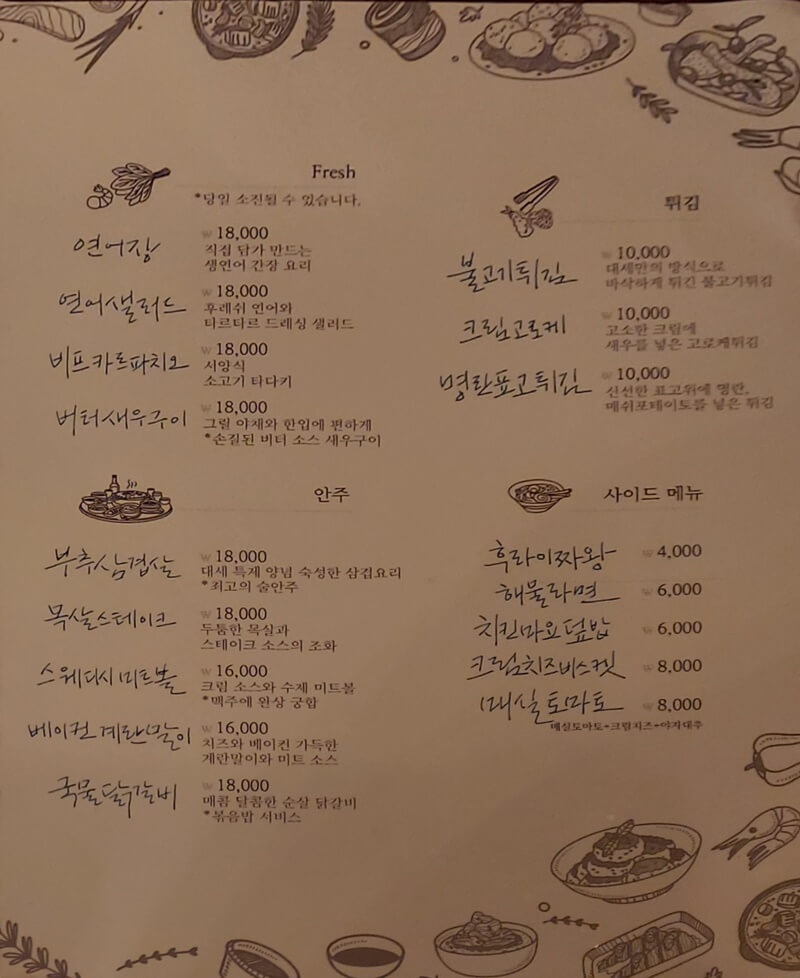 Fresh
*당일 소진될 수 있습니다.
연어장
₩ 18,000
직접 담가 만드는
생연어 간장 요리
연어샐러드
₩ 18,000
후레쉬 연어와
타르타르 드레싱 샐러드
비프카르파치오
₩ 18,000
서양식
소고기 타다키
버터새우구이
₩ 18,000
그릴 야채와 한입에 편하게
*손질된 버터 소스 새우구이
안주
부추삼겹살
₩ 18,000
대세 특제 양념 숙성한 삼겹요리
*최고의 술안주
목살스테이크
₩ 18,000
두툼한 목살과
스테이크 소스의 조화
스웨디시미트볼
₩ 16,000
크림 소스와 수제 미트볼
*맥주에 완상 궁합
베이컨계란말이
₩ 16,000
치즈와 베이컨 가득한
계란말이와 미트 소스
국물닭갈비
₩ 18,000
매콤 달콤한 순살 닭갈비
*볶음밥 서비스
튀김
불고기튀김
₩ 10,000
대세만의 방식으로
바삭하게 튀긴 불고기튀김
크림고로케
₩ 10,000
고소한 크림에
새우를 넣은 고로케튀김
명란표고튀김
₩ 10,000
신선한 표고위에 명란,
매쉬포테이토를 넣은 튀김
사이드 메뉴
후라이짜왕
₩ 4,000
해물라면
₩ 6,000
치킨마요덮밥
₩ 6,000
크림치즈비스켓
₩ 8,000
매실토마토
₩ 8,000
매실토마토+크림치즈+야자대추